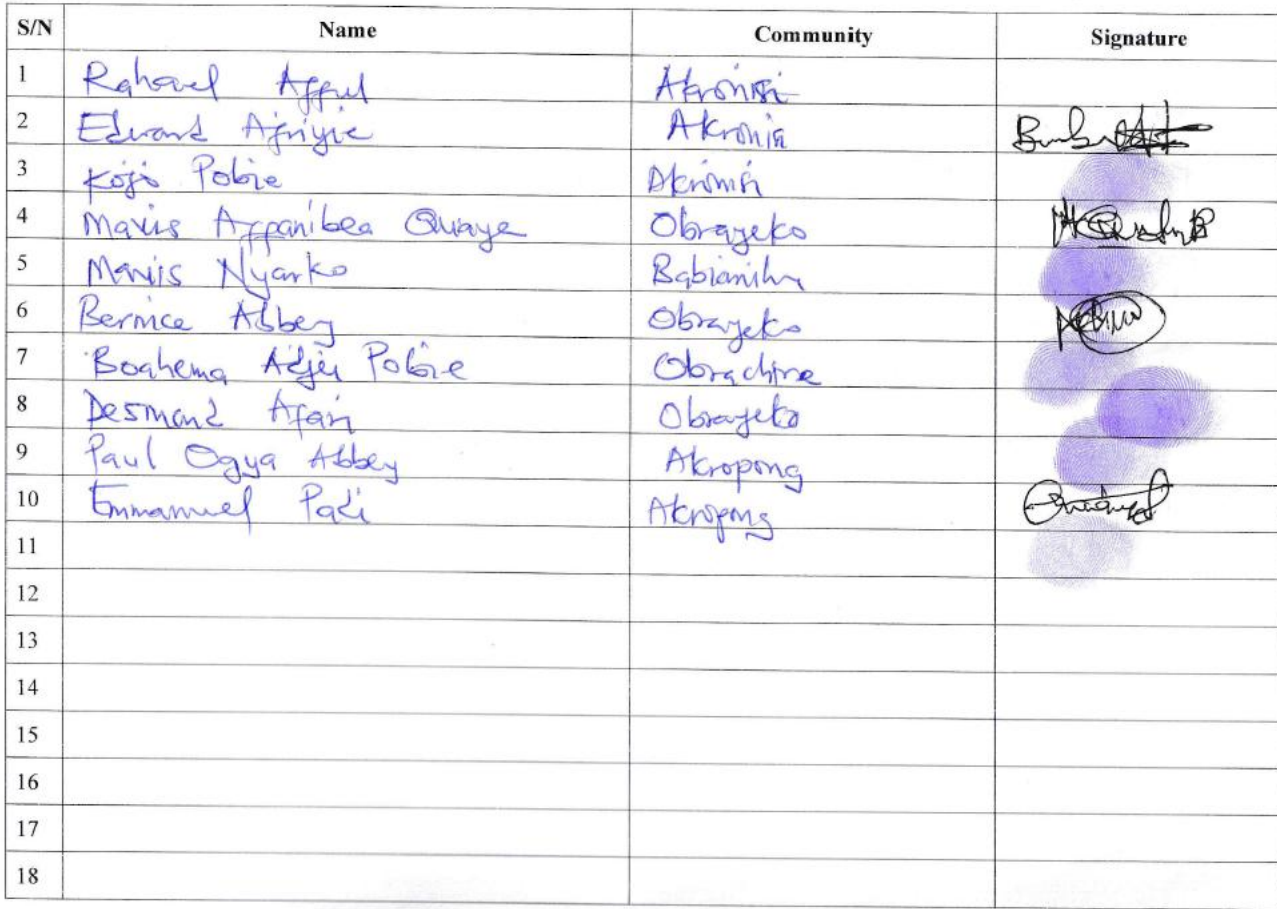 S/N Name Community Signature
1 Rahavel Afful Akronisi
2 Edward Afriyie Akronia
3 Kojo Pobie Akronisi
4 Mavis Appanibea Quaye Obrayeko
5 Mavis Nyarko Babianiha
6 Bernice Abbey Obrayeko
7 Boahema Adjei Pobie Obrachire
8 Desmond Afari Obrayeko
9 Paul Ogya Abbey Akropong
10 Emmanuel Padi Akropong
11
12
13
14
15
16
17
18